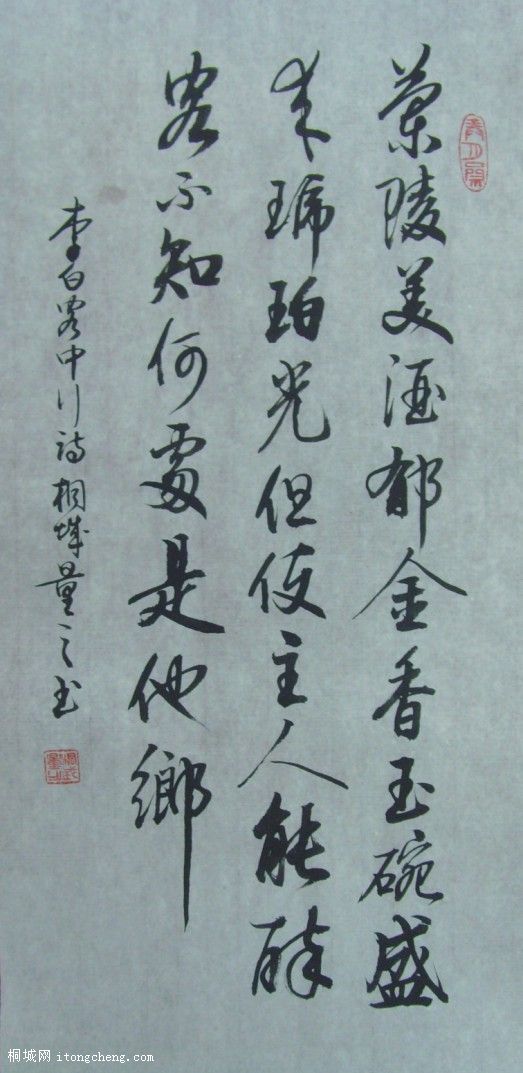 蘭陵美酒郁金香玉碗盛
来琥珀光但使主人能醉
客不知何處是他鄉
李白客中行诗桐城量之书
桐城网 itongcheng.com